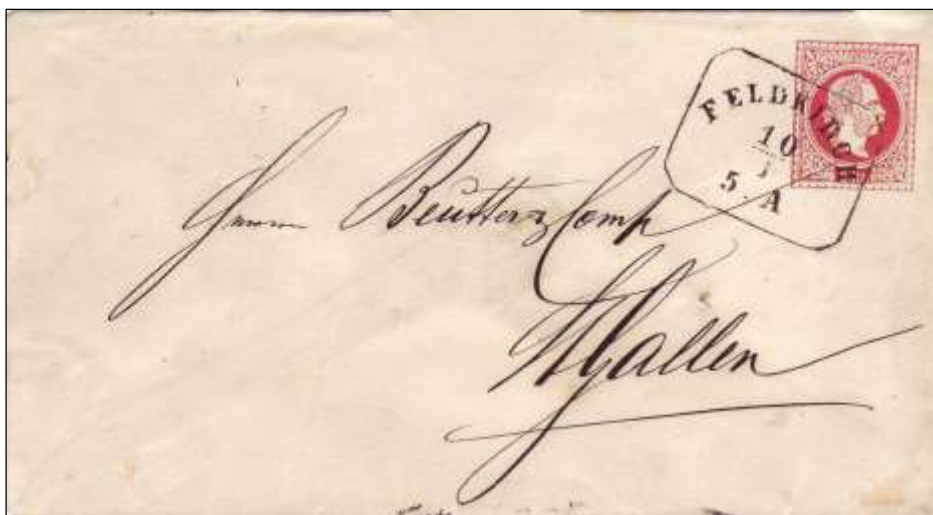 FELDKIRCH
10
5. A
Herren Beutter & Comp
St Gallen